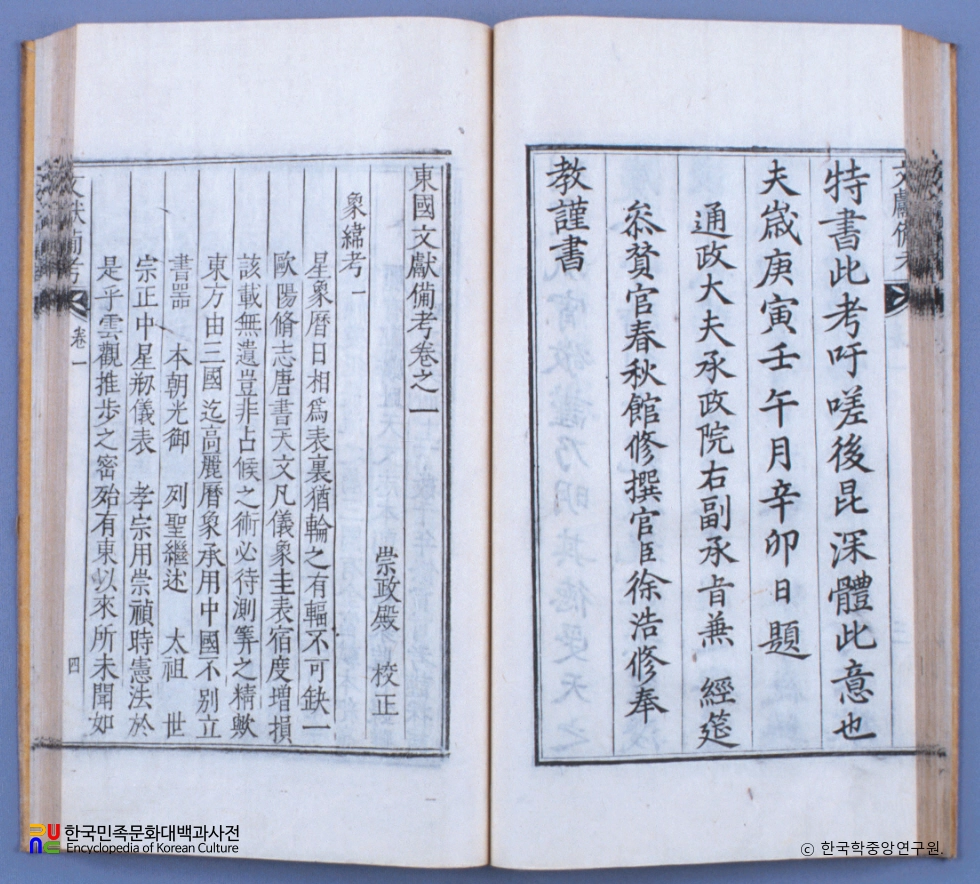 特書此考吁嗟後昆深體此意也
夫歲庚寅壬午月辛卯日題
通政大夫承政院右副承旨兼 經筵
叅贊官春秋館修撰官臣徐浩修奉
敎謹書
東國文獻備考卷之一
崇政殿 校正
象緯考一
星象曆日相爲表裏猶輪之有輻不可缺一
歐陽脩志唐書天文凡儀象圭表宿度增損
該載無遺豈非占候之術必待測筭之精歟
東方由三國迄高麗曆象承用中國不別立
書器 本朝光御 列聖繼述 太祖 世
宗正中星刱儀表 孝宗用崇禎時憲法於
是乎雲觀推步之密殆有東以來所未聞如
文獻備考
卷一
四
한국민족문화대백과사전
Encyclopedia of Korean Culture
ⓒ 한국학중앙연구원.